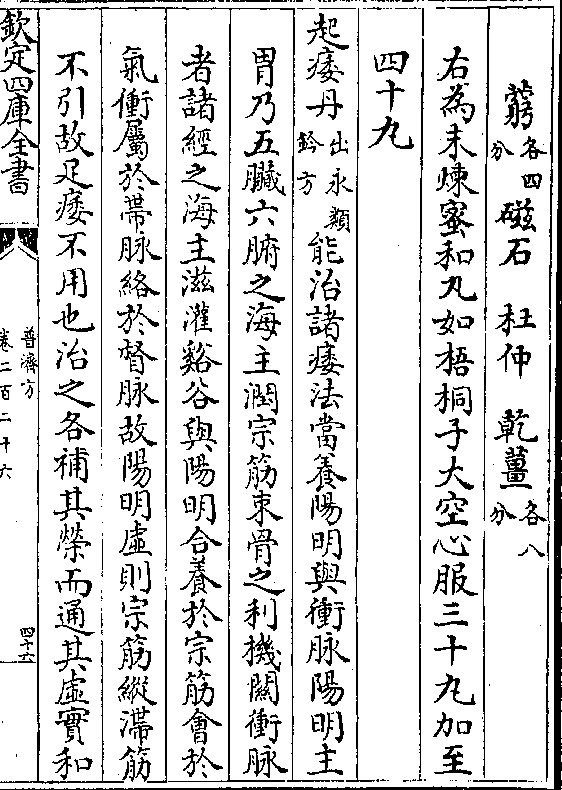 藭各四分磁石 杜仲 乾薑各八分
右為末煉蜜和丸如梧桐子大空心服三十丸加至
四十丸
起痿丹出永類鈐方能治諸痿法當養陽明與衝脉陽明主
胃乃五臟六腑之海主潤宗筋束骨之利機關衝脉
者諸經之海主滋灌谿谷與陽明合養於宗筋會於
氣衝屬於帶脉絡於督脉故陽明虛則宗筋縱滯筋
不引故足痿不用也治之各補其榮而通其虛實和
欽定四庫全書
普濟方
卷二百二十六
四十六